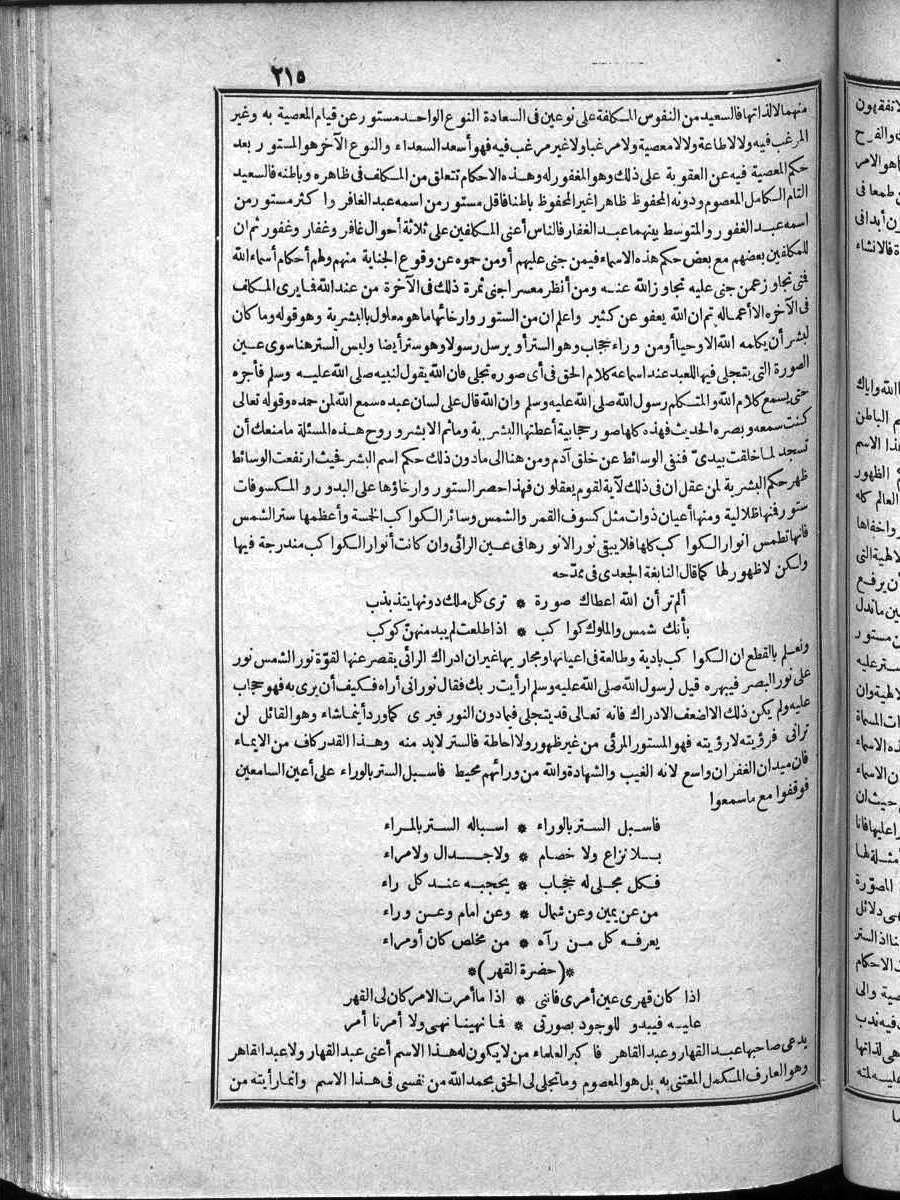 ٢١٥
منهما لا لذاتها فالسعيد من النفوس المكلفة على نوعين فى السعادة النوع الواحد مستور عن قيام المعصية به وغير
المرغب فيه ولا لا طاعة ولا لا معصية ولا مرغبا ولا غير مرغب فيه فهو أسعد السعداء والنوع الآخر هو المستور بعد
حكم المعصية فيه عن العقوبة على ذلك وهو المغفور له وهذه الاحكام تتعلق من المكلف فى ظاهره وباطنه فالسعيد
التام الكامل المعصوم ودونه المحفوظ ظاهرا غير المحفوظ باطنا فاقل مستور من اسمه عبد الغافر واكثر مستور من
اسمه عبد الغفور والمتوسط بينهما عبد الغفار فالناس أعنى المكلفين على ثلاثة أحوال غافر وغفار وغفور ثم ان
للمكلفين بعضهم مع بعض حكم هذه الاسماء فيمن جنى عليهم أومن حموه عن وقوع الجناية منهم ولهم أحكام أسماء الله
فمن تجاوز عمن جنى عليه تجاوز الله عنه ومن أنظر معسرا جنى ثمرة ذلك فى الآخرة من عند الله فما يرى المكلف
فى الآخره الا أعماله ثم ان الله يعفو عن كثير واعلم ان من الستور وارخائها ما هو معلول بالبشرية وهو قوله وما كان
لبشر أن يكلمه الله الا وحيا أو من وراء حجاب وهو الستر أو يرسل رسولا وهو ستر أيضا وليس الستر هنا سوى عين
الصورة التى يتجلى فيها للعبد عند اسماعه كلام الحق فى أى صوره تجلى فان الله يقول لنبيه صلى الله عليه وسلم فأجره
حتى يسمع كلام الله والمتكلم رسول الله صلى الله عليه وسلم وان الله قال على لسان عبده سمع الله لمن حمده وقوله تعالى
كنت سمعه وبصره الحديث فهذه كلها صور حجابية أعطتها البشرية وما ثم الا بشر وروح هذه المسئلة ما منعك أن
تسجد لما خلقت بيدىّ فنفى الوسائط عن خلق آدم ومن هنا الى ما دون ذلك حكم اسم البشر فحيث ارتفعت الوسائط
ظهر حكم البشرية لمن عقل ان فى ذلك لآية لقوم يعقلون فهذا حصر الستور وارخاؤها على البدور والمكسوفات
ستور فمنها ظلالية ومنها أعيان ذوات مثل كسوف القمر والشمس وسائر الكواكب الخمسة وأعظمها ستر الشمس
فانها تطمس انوار الكواكب كلها فلا يبقى نور الا نورها فى عين الرائى وان كانت أنوار الكواكب مندرجة فيها
ولكن لا ظهور لها كما قال النابغة الجعدى فى ممدّحه
ألم تر أن الله اعطاك صورة * ترى كل ملك دونها يتذبذب
بأنك شمس والملوك كواكب * اذا طلعت لم يبد منهنّ كوكب
ونعلم بالقطع ان الكواكب بادية وطالعة فى اعيانها ومجاريها غير ان ادراك الرائى يقصر عنها لقوّة نور الشمس نور
على نور البصر فيبهره قيل لرسول الله صلى الله عليه وسلم ارأيت ربك فقال نورانى أراه فكيف أن يرى به فهو حجاب
عليه ولم يكن ذلك الا لضعف الادراك فانه تعالى قد يتجلى فيما دون النور فيرى كما ورد أينما شاء وهو القائل لن
ترانى فرؤيته لا رؤيته فهو المستور المرئى من غير ظهور ولا احاطة فالستر لا بد منه وهذا القدر كاف من الايماء
فان ميدان الغفران واسع لانه الغيب والشهادة والله من ورائهم محيط فاسبل الستر بالوراء على أعين السامعين
فوقفوا مع ما سمعوا
فاسبل الستر بالوراء * اسباله الستر بالمراء
بلا نزاع ولا خصام * ولا جدال ولا مراء
فكل مجلى له حجاب * يحجبه عند كل راء
من عن يمين وعن شمال * وعن امام وعن وراء
يعرفه كل من رآه * من مخلص كان أو مراء
*(حضرة القهر)*
اذا كان قهرى عين أمرى فاننى * اذا ما أمرت الامر كان لى القهر
عليه فيبدو للوجود بصورتى * فما نهينا نهى ولا أمرنا أمر
يدعى صاحبها عبد القهار وعبد القاهر فاكبر العلماء من لا يكون له هذا الاسم أعنى عبد القهار ولا عبد القاهر
وهو العارف المكمل المعتنى به بل هو المعصوم وما تجلى لى الحق بحمد الله من نفسى فى هذا الاسم وانما رأيته من